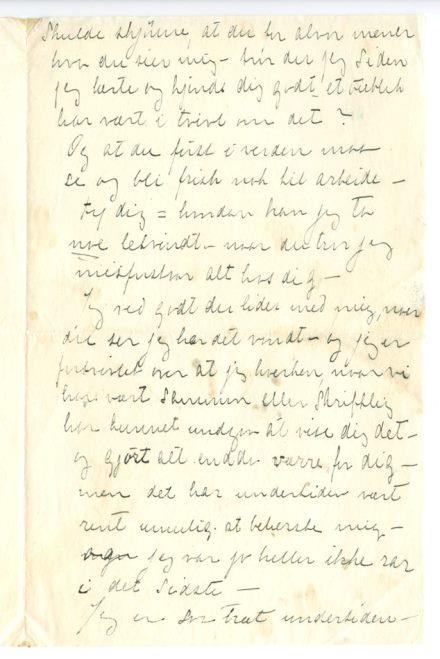 Skulde skjønne, at du for alvor mener
hva du sier mig – tror du, jeg siden
jeg lærte og kjende dig godt, et øieblik
har vært i tvivl om det ?
Og at du først i verden maa
se og bli frisk nok til arbeide –
Fy dig = hvordan kan jeg ta
noe letvindt – naar du tror jeg
misforstaar alt hos dig –
Jeg ved godt du lider med mig, naar
du ser jeg har det vondt – og jeg er
fortvilet over at jeg hverken, naar vi
har vært sammen eller skriftlig
har kunnet undgaa at vise dig det –
og gjort alt endda værre for dig –
men det har undertiden vært
rent umulig at beherske mig –
jeg var jo heller ikke rar
i det sidste –
Jeg er saa træt undertiden –